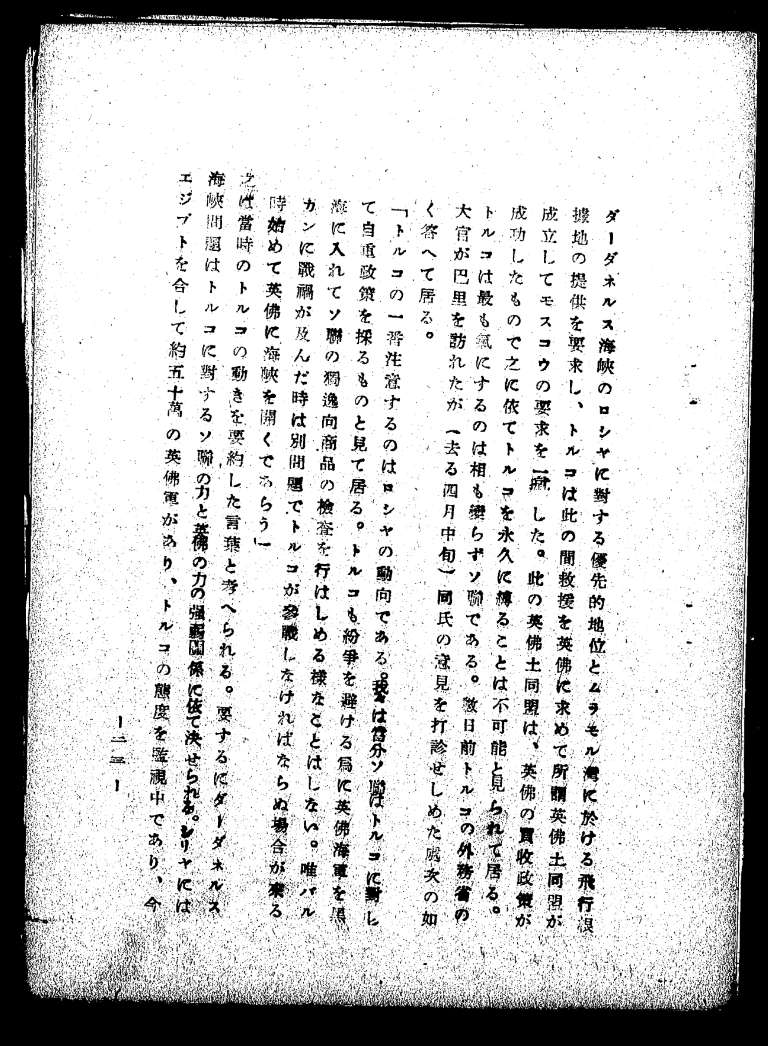 ダーダネルス海峽のロシヤに對する優先的地位とムラモル灣に於ける飛行根
據地の提供を要求し、トルコは此の間救援を英佛に求めて所謂英佛土同盟が
成立してモスコウの要求を一蹴した。此の英佛土同盟は、英佛の買收政策が
成功したもので之に依てトルコを永久に縛ることは不可能と見られて居る。
トルコは最も氣にするのは相も變らずソ聯である。數日前トルコの外務省の
大官が巴里を訪れたが（去る四月中旬）同氏の意見を打診せしめた處次の如
く答へて居る。
「トルコの一番注意するのはロシヤの動向である。我々は當分ソ聯はトルコに對し
て自重政策を採るものと見て居る。トルコも紛爭を避ける爲に英佛海軍を黑
海に入れてソ聯の獨逸向商品の檢査を行はしめる樣なことはしない。唯バル
カンに戰禍が及んだ時は別問題でトルコが參戰しなければならぬ場合が來る
時始めて英佛に海峽を開くであらう」
之は當時のトルコの動きを要約した言葉と考へられる。要するにダーダネルス
海峽問題はトルコに對するソ聯の力と英佛の力の强弱關係に依て決せられる。シリヤには
エジプトを合して約五十萬の英佛軍があり、トルコの態度を監視中であり、今
ー二三ー